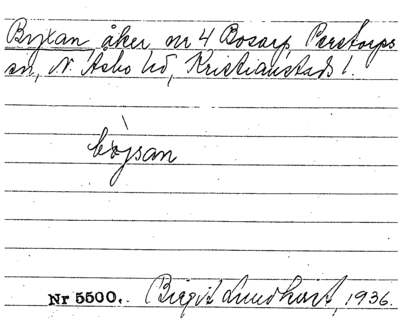 Byxan åker nr 4 Bosarp Perstorps
sn, N. Åsbo hd, Kristianstads l.
bòjsan
Nr 5500. Birgit Lundkvist, 1936.